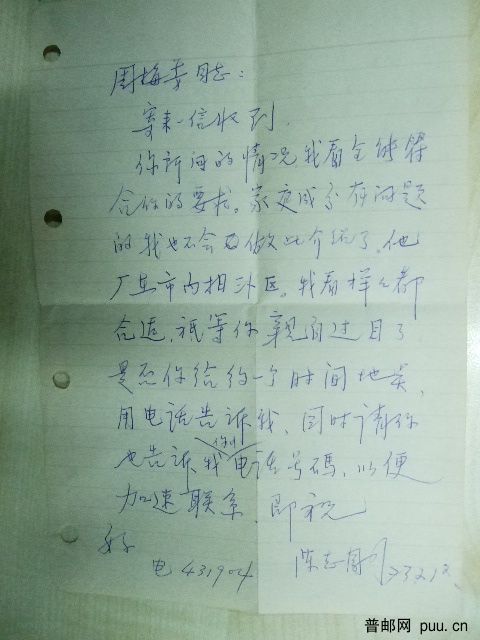 周梅香同志：
寄来一信收到.
你所问的情况，我看全能符
合你的要求。家庭成分有问题
的我也不会做此介绍了，他
厂在市内相沙区。我看样样都
合适，祇等你亲自过目了
是否你给约一个时间地点，
用电话告诉我，同时请你
也告诉我你的电话号碼，以便
加速联系，即祝
好
电 431904 陈志 23212
普邮网 puu.cn